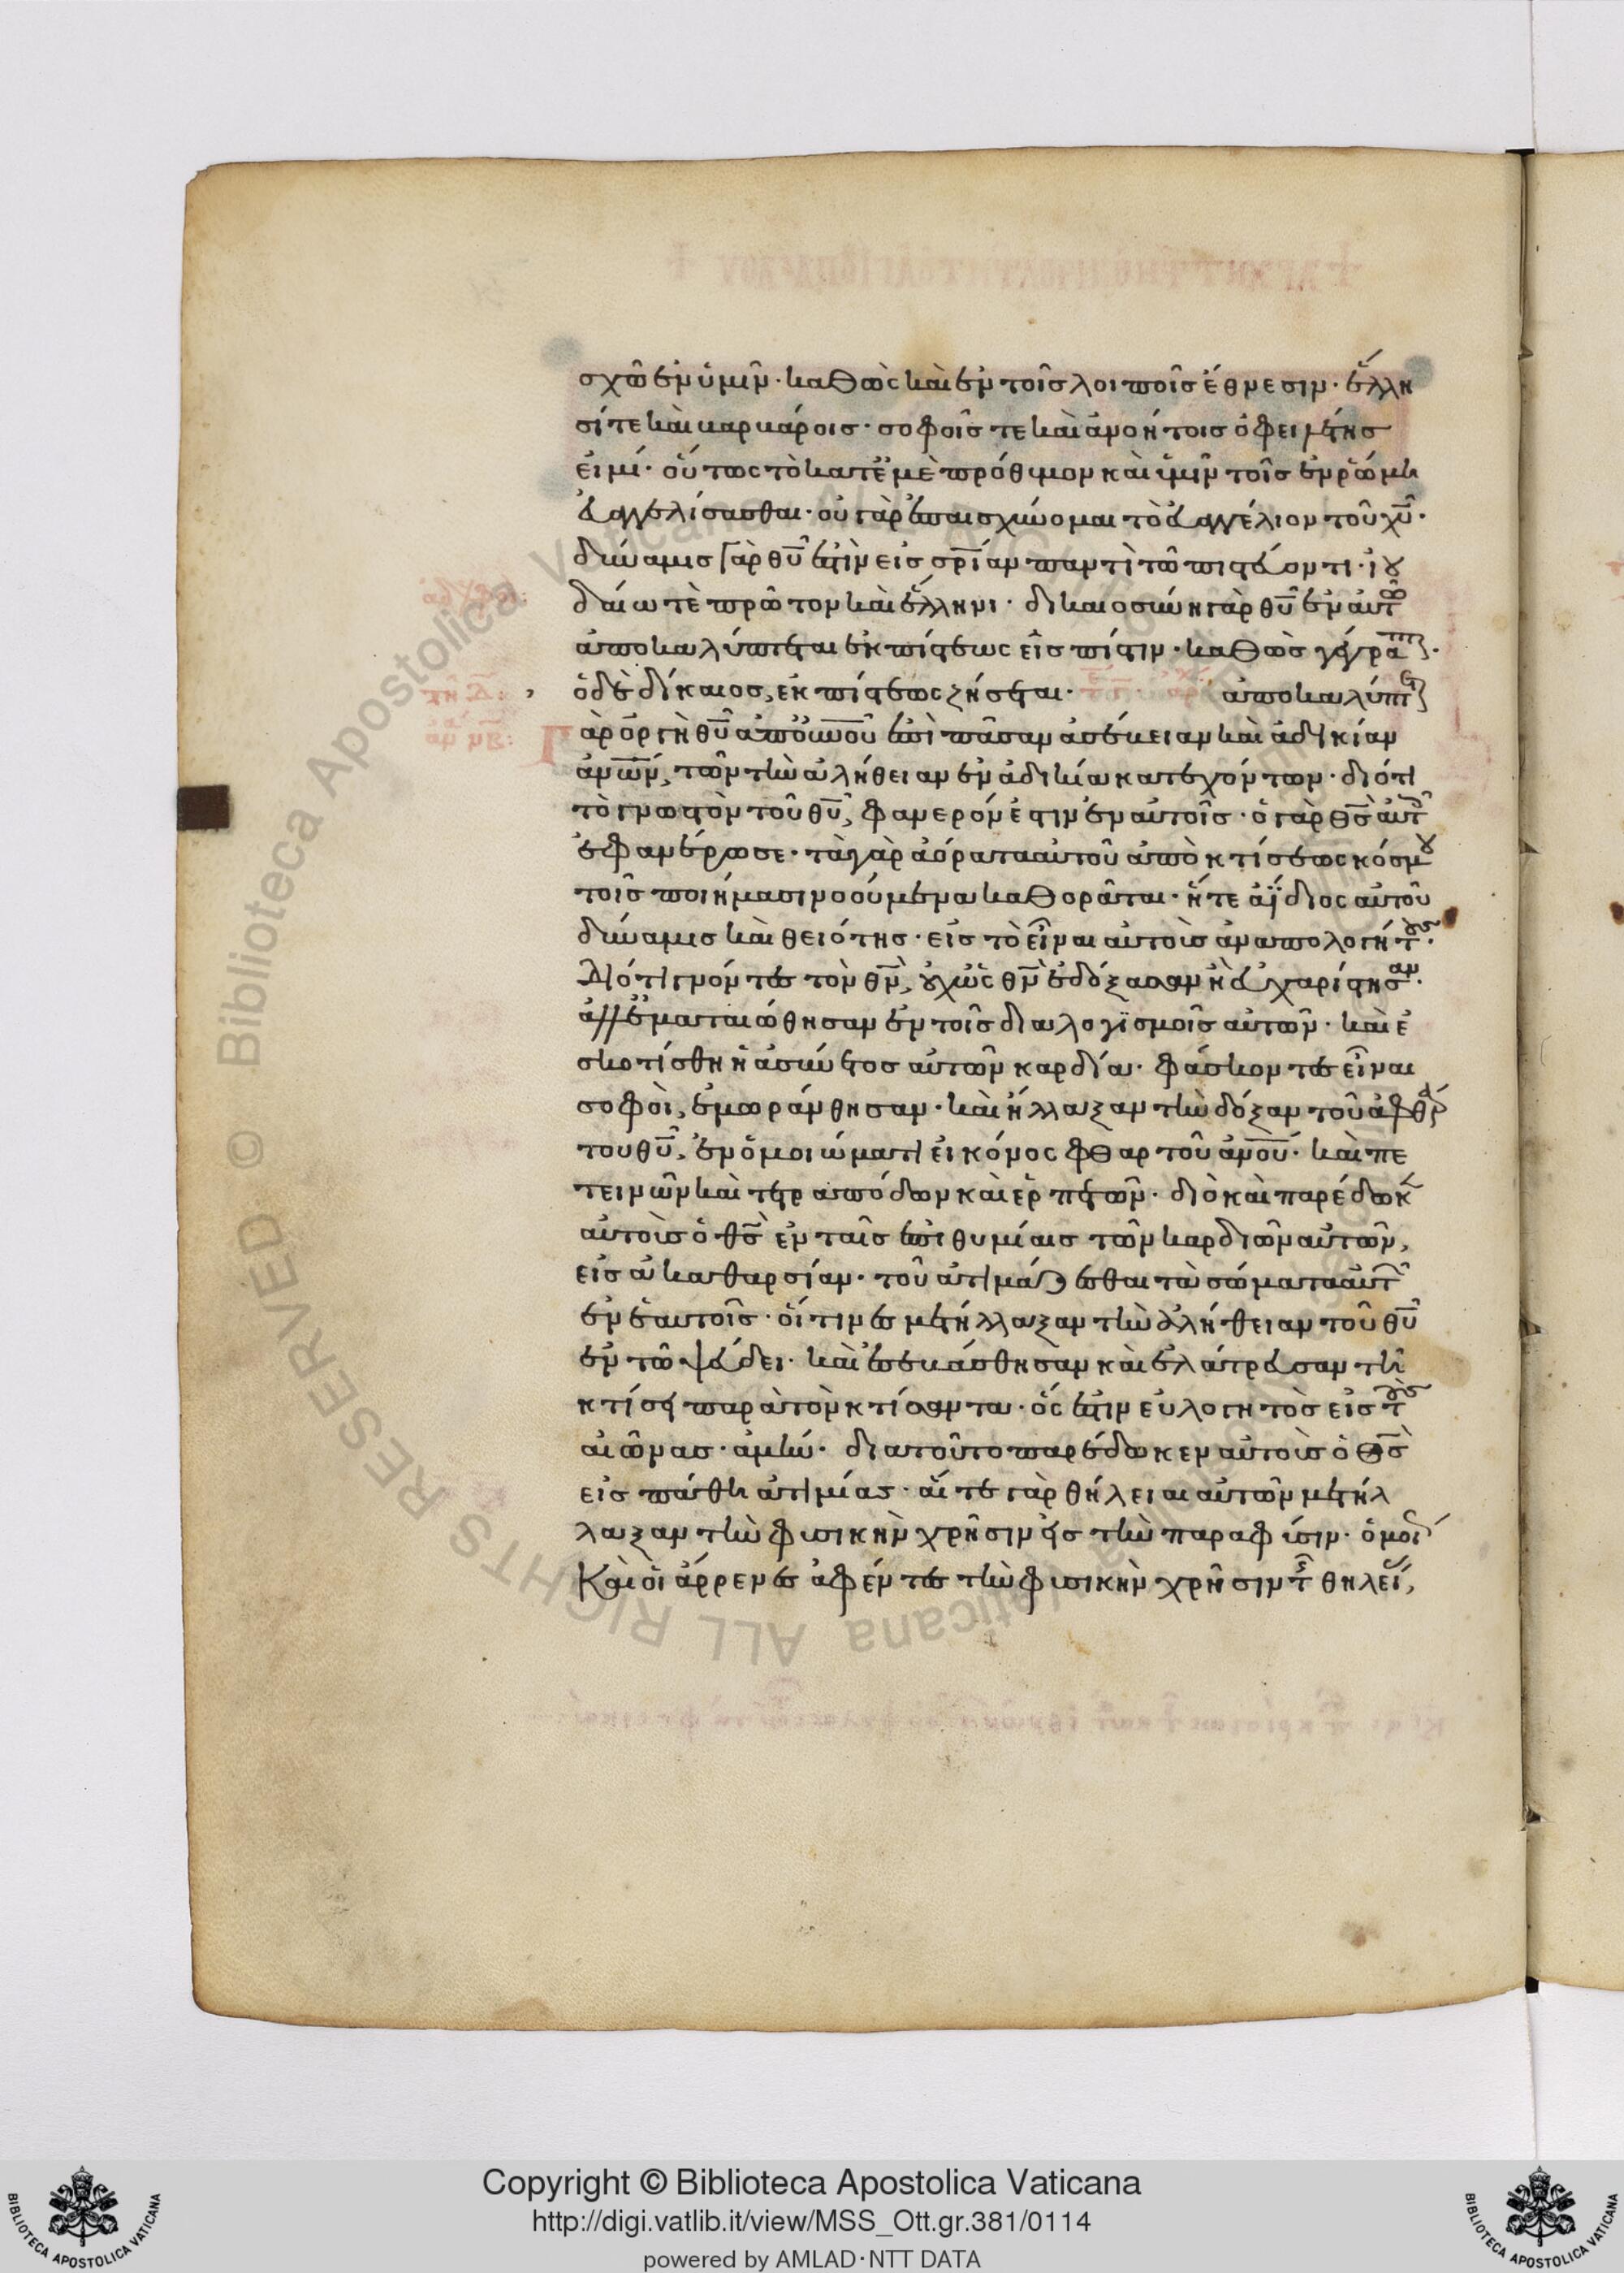 σχῶ ἐν ὑμῖν· καθὼς καὶ ἐν τοῖς λοιποῖς ἔθνεσιν· ἕλλη
σί τε καὶ βαρβάροις· σοφοῖς τε καὶ ἀνοήτοις ὀφειλέτης
εἰμί· οὕτως τὸ κατ ἐμὲ πρόθυμον καὶ ὑμῖν τοῖς ἐν ῥώμη
εὐαγγελίσασθαι· οὐ γὰρ ἐπαισχύνομαι τὸ εὐαγγέλιον τοῦ χ̅υ̅·
δύναμις γὰρ θ̅υ̅ ἐστὶν εἰς σ̅ρ̅ί̅αν παντὶ τῶ πιστεύοντι· ἰου
δαίω τὲ πρῶτον καὶ ἕλληνι· δικαιοσύνη γὰρ θ̅υ̅ ἐν αὐτῶ
ἀποκαλύπτεται ἐκ πίστεως εἰς πίστιν· καθὼς γέγραπ
ὁ δὲ δίκαιος, ἐκ πίστεως ζήσεται· ἀποκαλύπτ
Γὰρ ὀργὴ θ̅υ̅ ἀπ ο̅υ̅ν̅ο̅υ̅ ἐπὶ πᾶσαν ἀσέβειαν καὶ ἀδικίαν
ἀν̅ω̅ν̅, τῶν τὴν ἀλήθειαν ἐν ἀδικία κατεχόντων· διότι
τὸ γνωστὸν τοῦ θ̅υ̅, φανερόν ἐστιν ἐν αὐτοῖς· ὁ γὰρ θ̅ς̅ αὐτ
ἐφανέρωσε· τὰ γὰρ ἀόρατα αὐτοῦ ἀπὸ κτίσεως κόσμου
τοῖς ποιήμασι νοούμενα καθορᾶται· ἥ τε ἀΐδιος αὐτοῦ
δύναμις καὶ θειότης· εἰς τὸ εἶναι αὐτοὺς ἀναπολογήτους·
Διότι γνόντες τὸν θ̅ν̅, οὐχ ὡς θ̅ν̅ ἐδόξασαν ἢ εὐχαρίστησαν·
ἀλλ ἐματαιώθησαν ἐν τοῖς διαλογισμοῖς αὐτῶν· καὶ ἐ
σκοτίσθη ἡ ἀσύνετος αὐτῶν καρδία· φάσκοντες εἶναι
σοφοὶ, ἐμωράνθησαν· καὶ ἤλλαξαν τὴν δόξαν τοῦ ἀφθάρ
του θ̅υ̅, ἐν ὁμοιώματι εἰκόνος φθαρτοῦ ἀν̅ο̅υ̅· καὶ πε
τεινῶν καὶ τετραπόδων καὶ ἑρπετῶν· διὸ καὶ παρέδωκ
αὐτοὺς ὁ θ̅ς̅ ἐν ταῖς ἐπιθυμίαις τῶν καρδιῶν αὐτῶν,
εἰς ἀκαθαρσίαν· τοῦ ἀτιμάζεσθαι τὰ σώματα αὐτ
ἐν ἑαυτοῖς· οἵτινες μετήλλαξαν τὴν ἀλήθειαν τοῦ θ̅υ̅
ἐν τῶ ψεύδει· καὶ ἐσεβάσθησαν καὶ ἐλάτρευσαν τῆ
κτίσει παρὰ τὸν κτίσαντα· ὅς ἐστιν εὐλογητὸς εἰς τοὺς
αἰῶνας· ἀμήν· διατοῦτο παρέδωκεν αὐτοὺς ὁ θ̅ς̅
εἰς πάθη ἀτιμίας· αἵ τε γὰρ θήλειαι αὐτῶν μετήλ
λαξαν τὴν φυσικὴν χρῆσιν εἰς τὴν παραφύσιν· ὁμοί
Καὶ οἱ ἄρρενες ἀφέντες τὴν φυσικὴν χρῆσιν τῆς θηλεί,
Biblioteca Apostolica Vaticana
ALL RIGHTS RESERVED ©
Copyright © Biblioteca Apostolica Vaticana
http://digi.vatlib.it/view/MSS_Ott.gr.381/0114
powered by AMLAD·NTT DATA
BIBLIOTECA APOSTOLICA VATICANA
BIBLIOTECA APOSTOLICA VATICANA